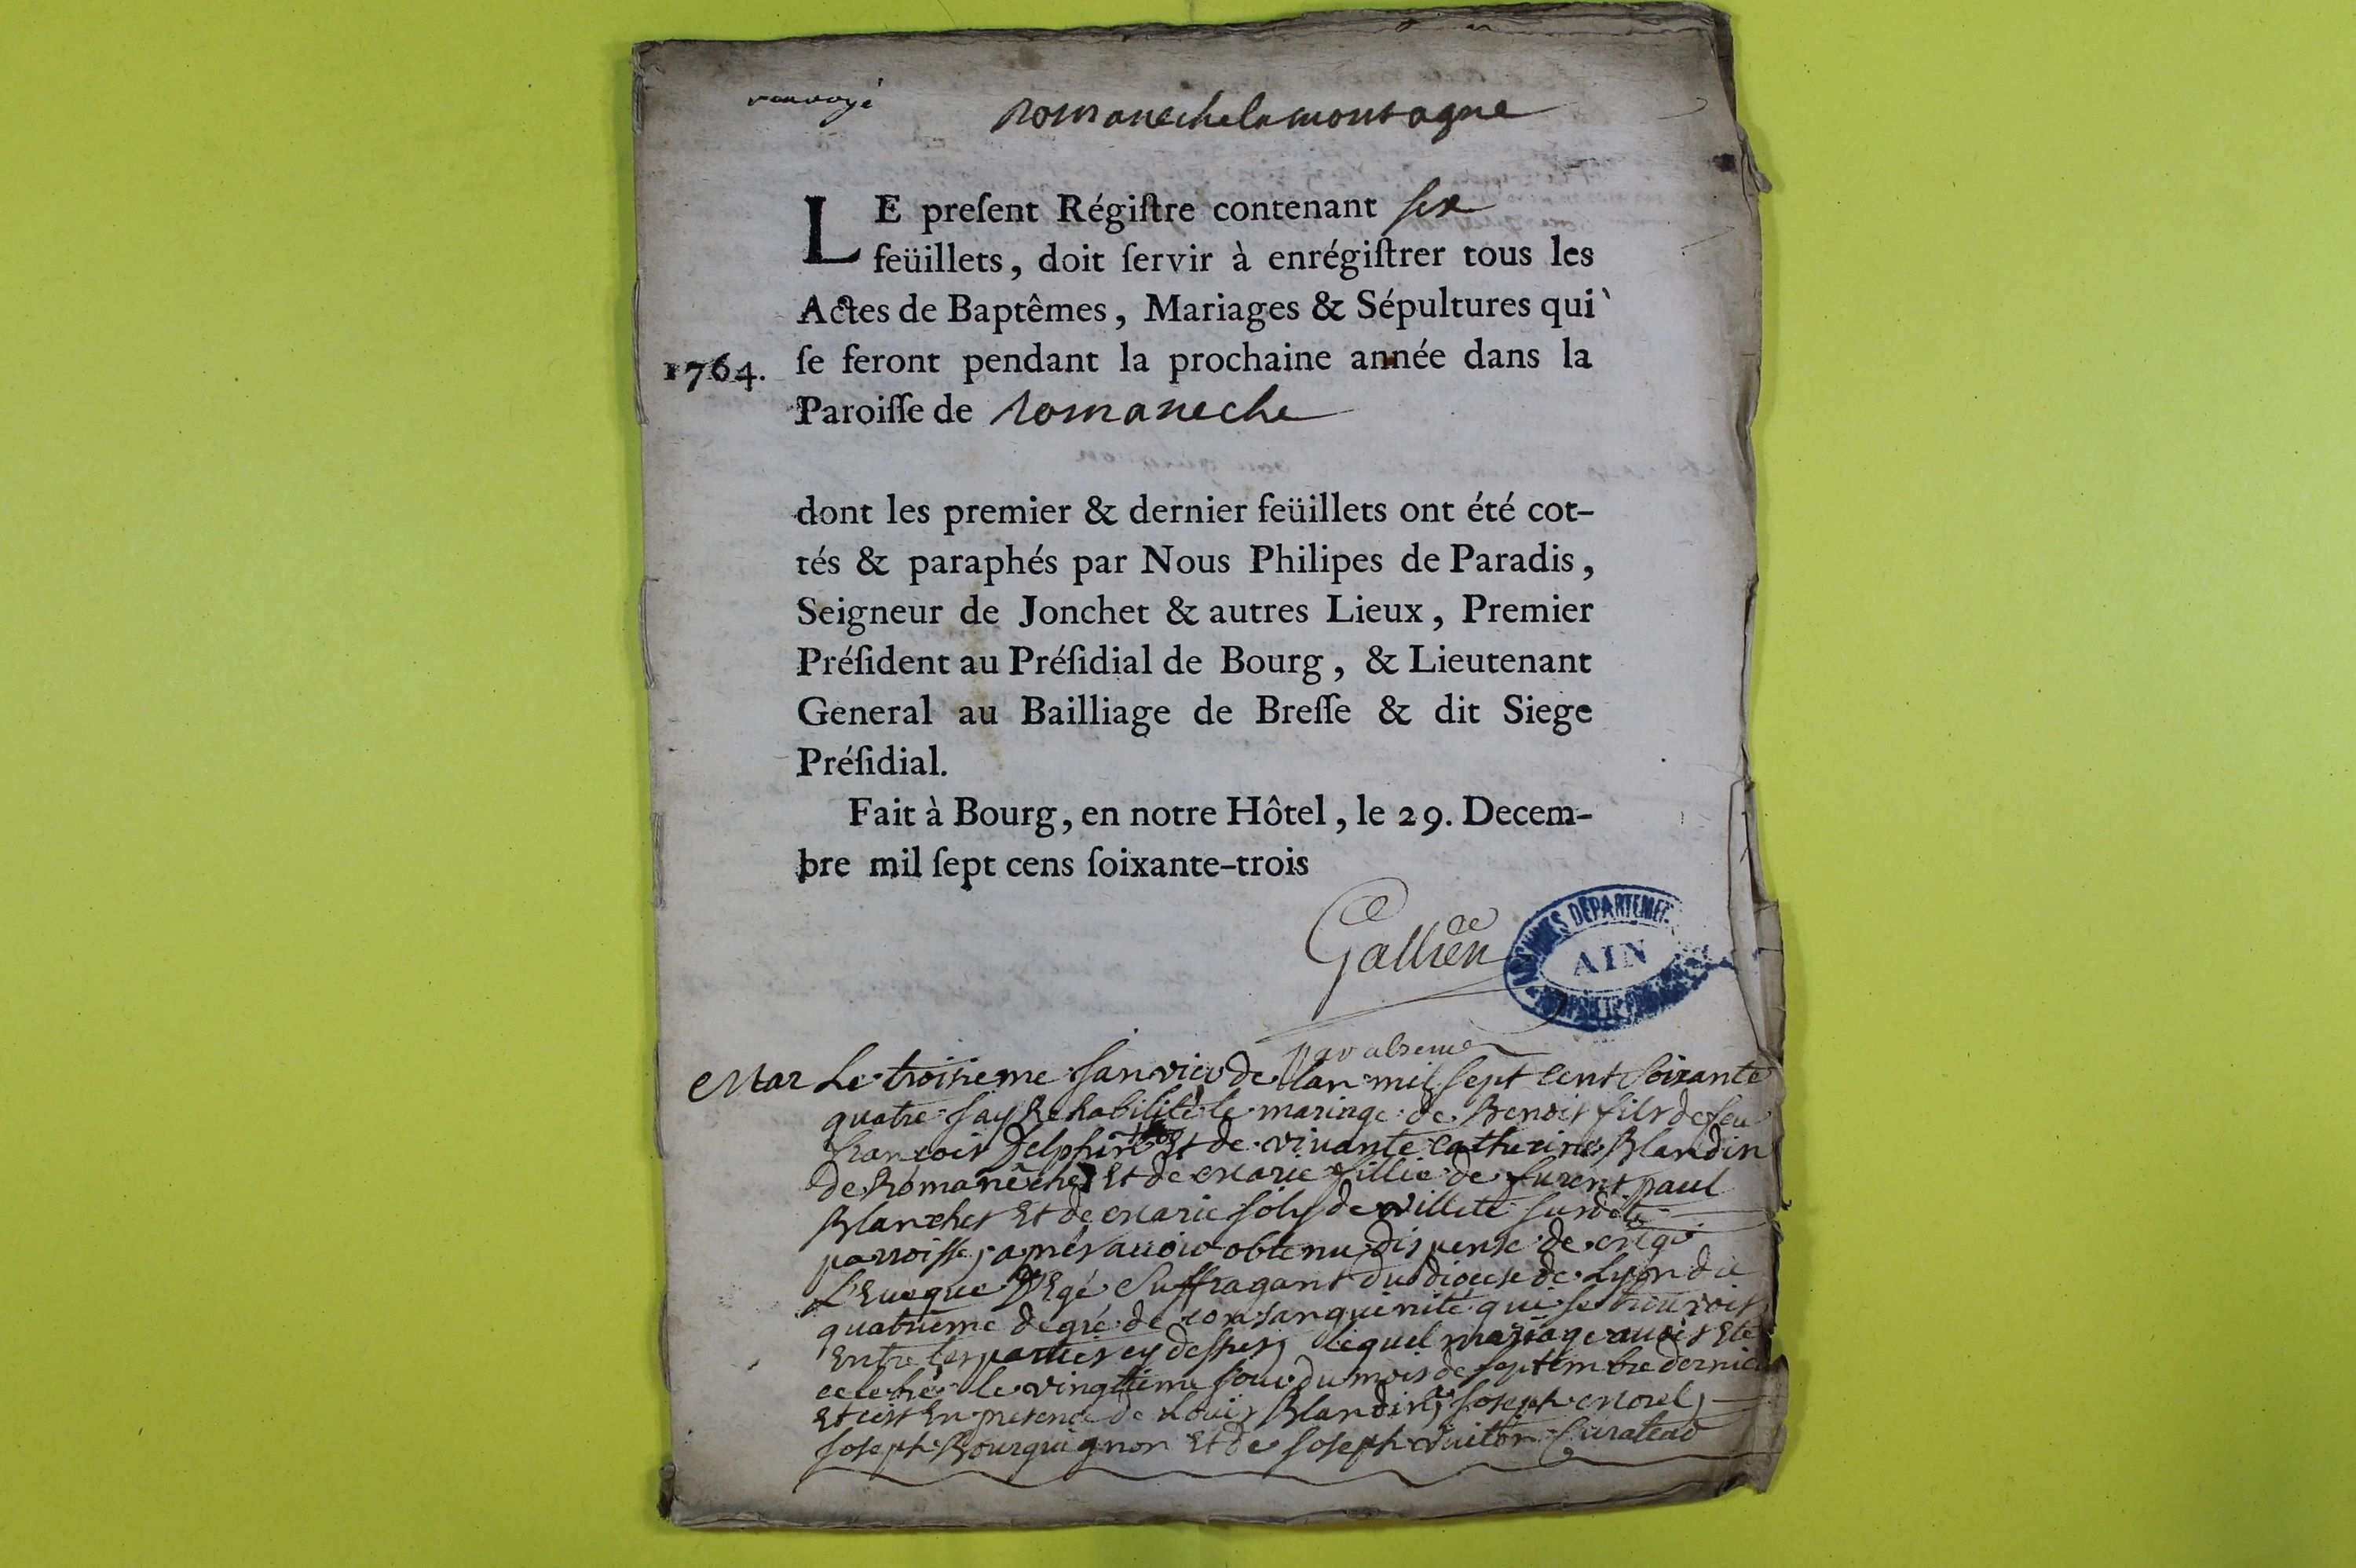 romanechelamontagne
LE preſent Régiſtre contenant six
feüillets, doit ſervir à enrégiſtrer tous les
Actes de Baptêmes, Mariages & Sépultures qui
1764. ſe feront pendant la prochaine année dans la
Paroiſſe de Romaneche
dont les premier & dernier feüillets ont été cot-
tés & paraphés par Nous Philipes de Paradis,
Seigneur de Jonchet & autres Lieux, Premier
Préſident au Préſidial de Bourg, & Lieutenant
General au Bailliage de Breſſe & dit Siege
Préſidial.
Fait à Bourg, en notre Hôtel, le 29. Decem-
bre mil ſept cens ſoixante-trois
Gallien
AIN
Mar Le troisieme Janvier de lan mil sept cent soixante
quatre jay Rehabilité le mariage de Benoit fils de feu
francois Delphin Et de vivante Catherine Blandin
de Romanêche Et de Marie fillie de furent paul
Blanchet Et de Marie Joly de villete surdite
parroisse, apres avoir obtenu dispense de Mgr
L'Eveque D'Egé Suffragant du diocese de Lyon du
quatrieme degré de consanguinité qui se trouvoit
Entre les parties cy dessus, lequel mariage avoit Eté
celebré le vingtieme Jour du mois de septembre dernier
Et cest En presence de Louis Blandin, Joseph Morel,
Joseph Bourguignon Et de Joseph Vuiton